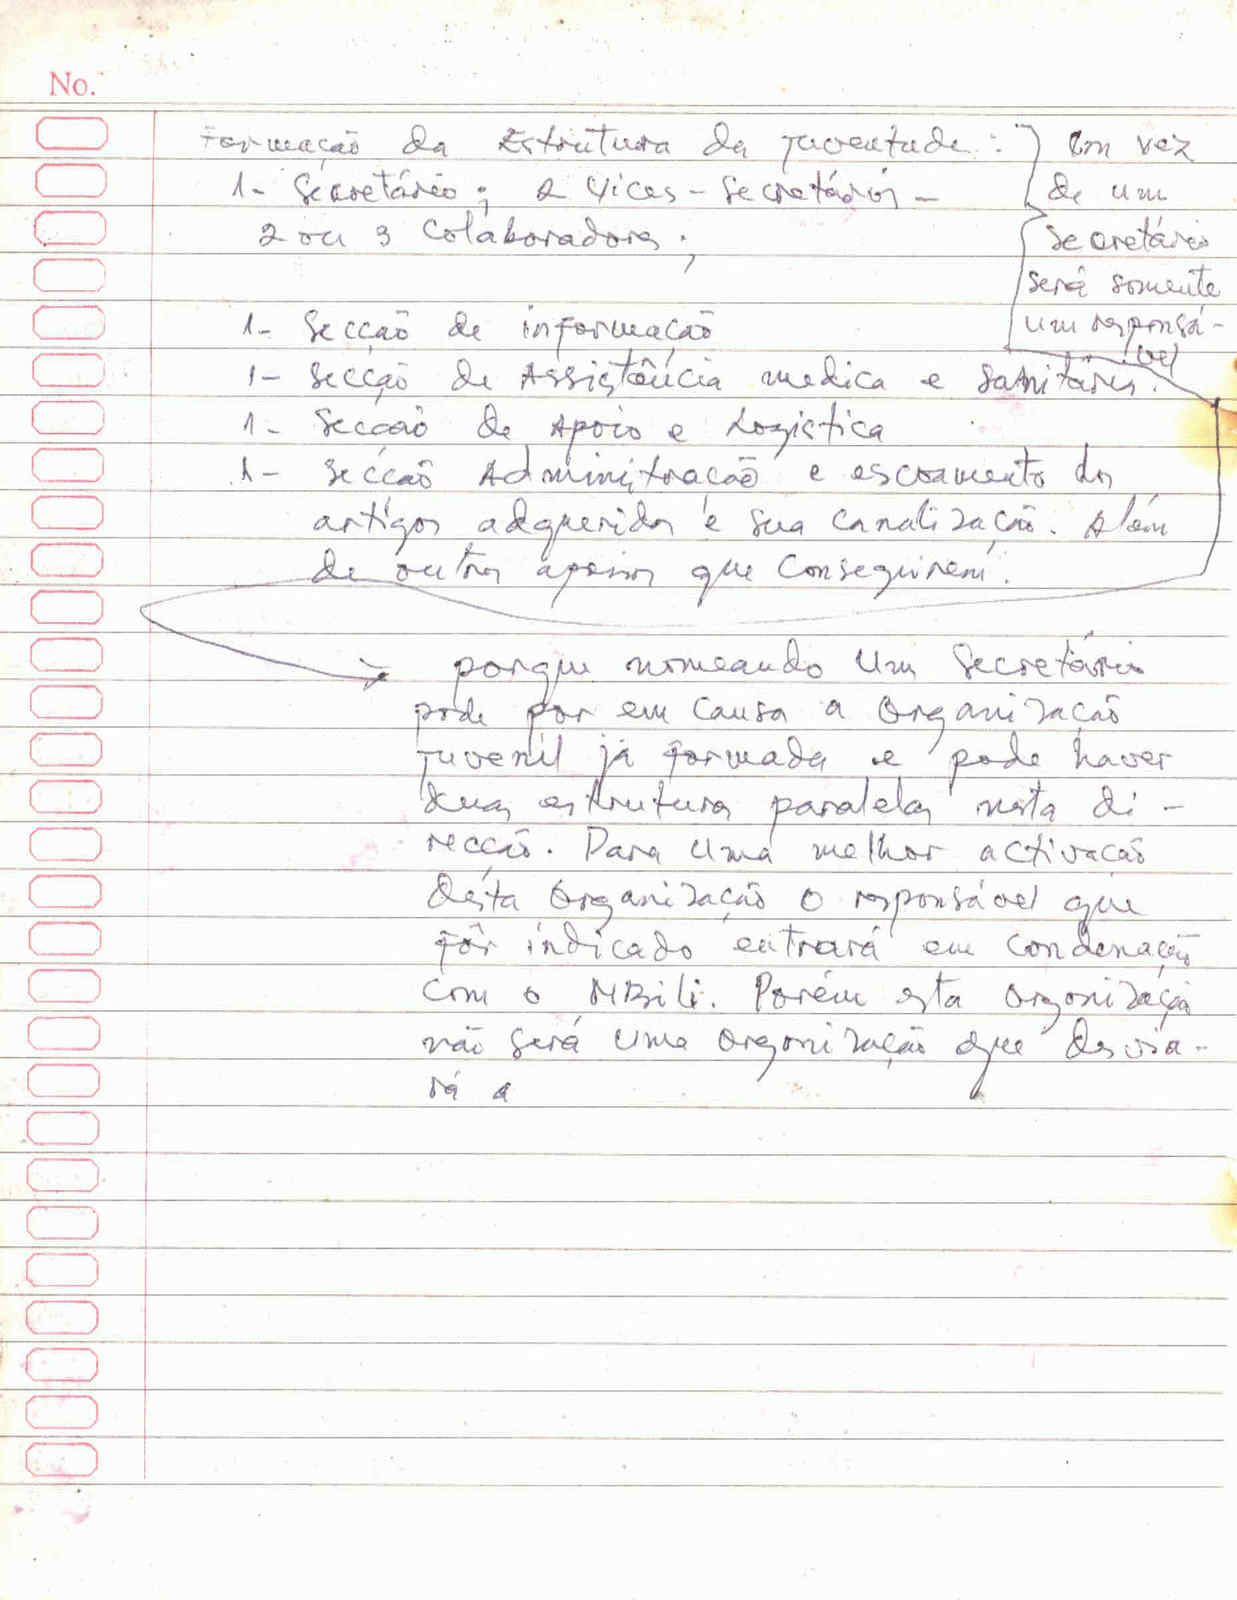 No.
Formação da Estrutura da Juventude:
1- Secretário; 2 Vices-Secretários -
2 ou 3 Colaboradores;
Em vez
de um
Secretário
será somente
um responsá-
vel
1- Secção de informação
1- Secção de Assistência medica e Sanitária.
1- Secção de Apoio e Logística
1- Secção Administração e escoamento dos
artigos adqueridos e sua Canalização. Além
de outros apoios que Conseguirem.
porque nomeando Um Secretário
pode por em Causa a Organização
Juvenil já formada e pode haver
duas estruturas paralelas nesta di-
recção. Para Uma melhor activação
desta Organização o responsável que
fôr indicado entrará em Condenação
Com o MBili. Porém esta Organização
não será Uma Organização que desvia-
rá a